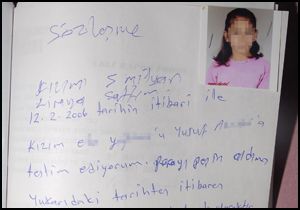 Sözleşme
Kızımı 5 milyar
liraya sattım
12.2.2006 tarihin itibari ile
Kızım yu Yusuf A
teslim ediyorum. parayı peşin aldım
Yukarıdaki tarihten itibaren